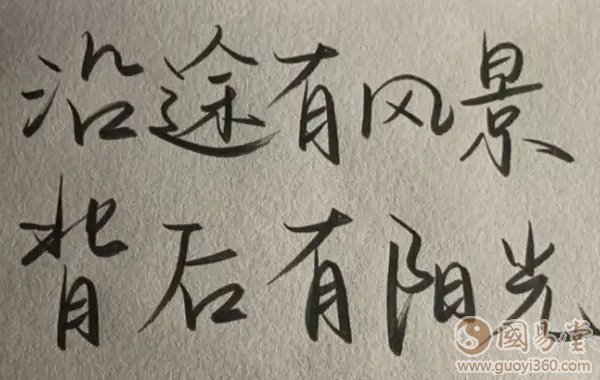 沿途有风景
背后有阳光
國易堂
www.guoyi360.com